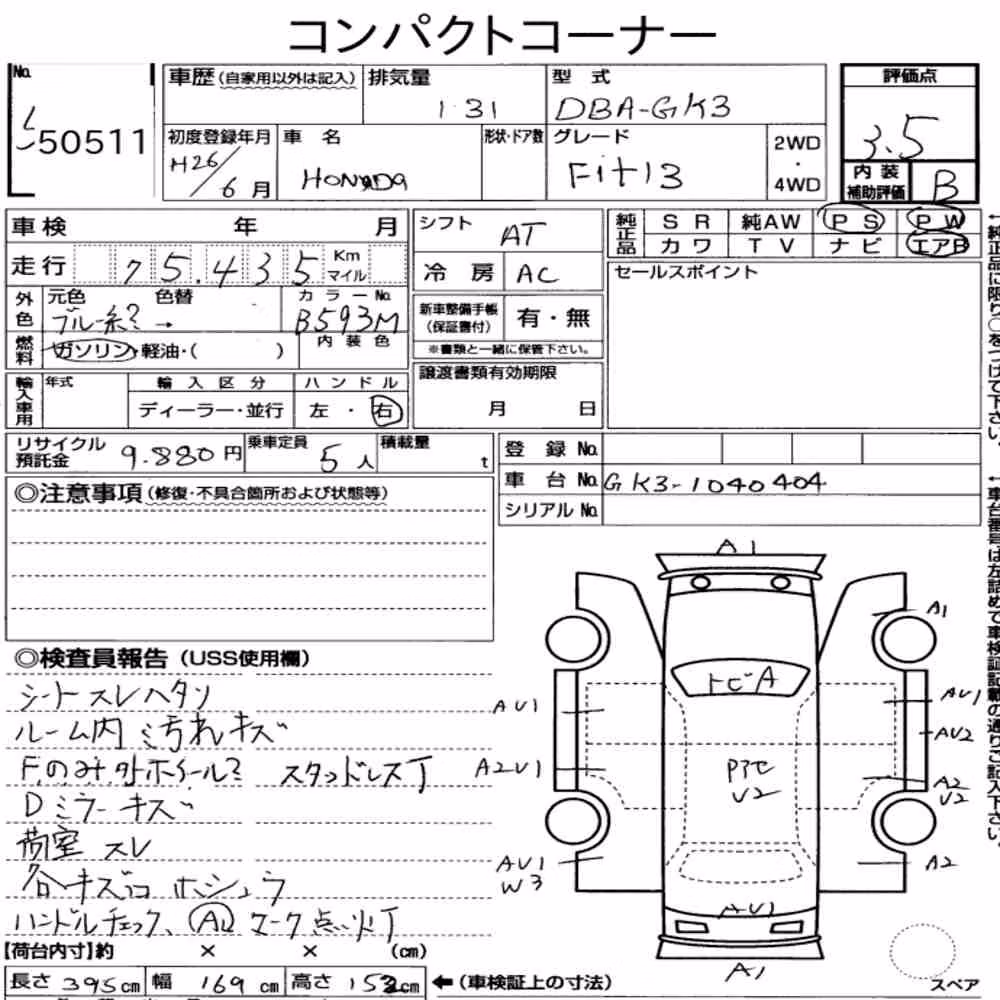 コンパクトコーナー
No. 50511
車歴(自家用以外は記入) 排気量 1.31 型式 DBA-GK3
評価点 3.5
初度登録年月 H26/6月 車名 HONDA 形状・ドア数 グレード Fit13 2WD・4WD
内装補助評価 B
車検 年 月
走行 75.435 Km マイル
シフト AT
冷房 AC
純正品 SR 純AW PS PW
カワ TV ナビ エアB
外色 元色 ブルー系2 色替 → カラーNo. B593M
燃料 ガソリン・軽油・( ) 内装色
新車整備手帳(保証書付) 有・無
※書類と一緒に保管下さい。
セールスポイント
輸入車用 年式 輸入区分 ハンドル
ディーラー・並行 左・右
譲渡書類有効期限
月 日
リサイクル預託金 9.880円 乗車定員 5人 積載量 t
登録No.
車台No. GK3-1040404
シリアルNo.
◎注意事項(修復・不具合箇所および状態等)
◎検査員報告(USS使用欄)
シートスレハタソ
ルーム内 汚れキズ
Fのみ外ホイール2 スタッドレス丁
Dミラーキズ
荷室スレ
各キズ凹
ハンドルチェック、
【荷台内寸】約 × × (cm)
長さ 395cm 幅 169cm 高さ 152cm ←(車検証上の寸法)
A1
A1
AU1
トビA
AU1
AU2
A2U1
Pﾃﾋ
U2
A2
U2
AU1
W3
A2
AU1
A1
スペア
←純正品に限り○をつけて下さい。
←車台番号は左詰めで車検証記載の通りご記入下さい。